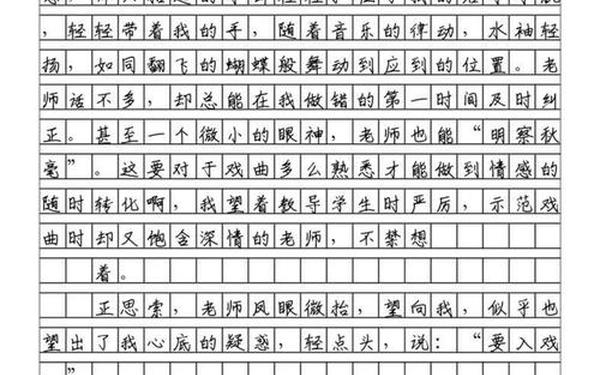 ，轻轻带着我的手，随着音乐的律动，水袖轻
扬，如同翻飞的蝴蝶般舞动到应到的位置。老
师话不多，却总能在我做错的第一时间及时纠
正。甚至一个微小的眼神，老师也能“明察秋
毫”。这要对于戏曲多么熟悉才能做到情感的
随时转化啊，我望着教导学生时严厉，示范戏
曲时却又饱含深情的老师，不禁想
着。
正思索，老师凤眼微抬，望向我，似乎也
望出了我心底的疑惑，轻点头，说：“要入戏